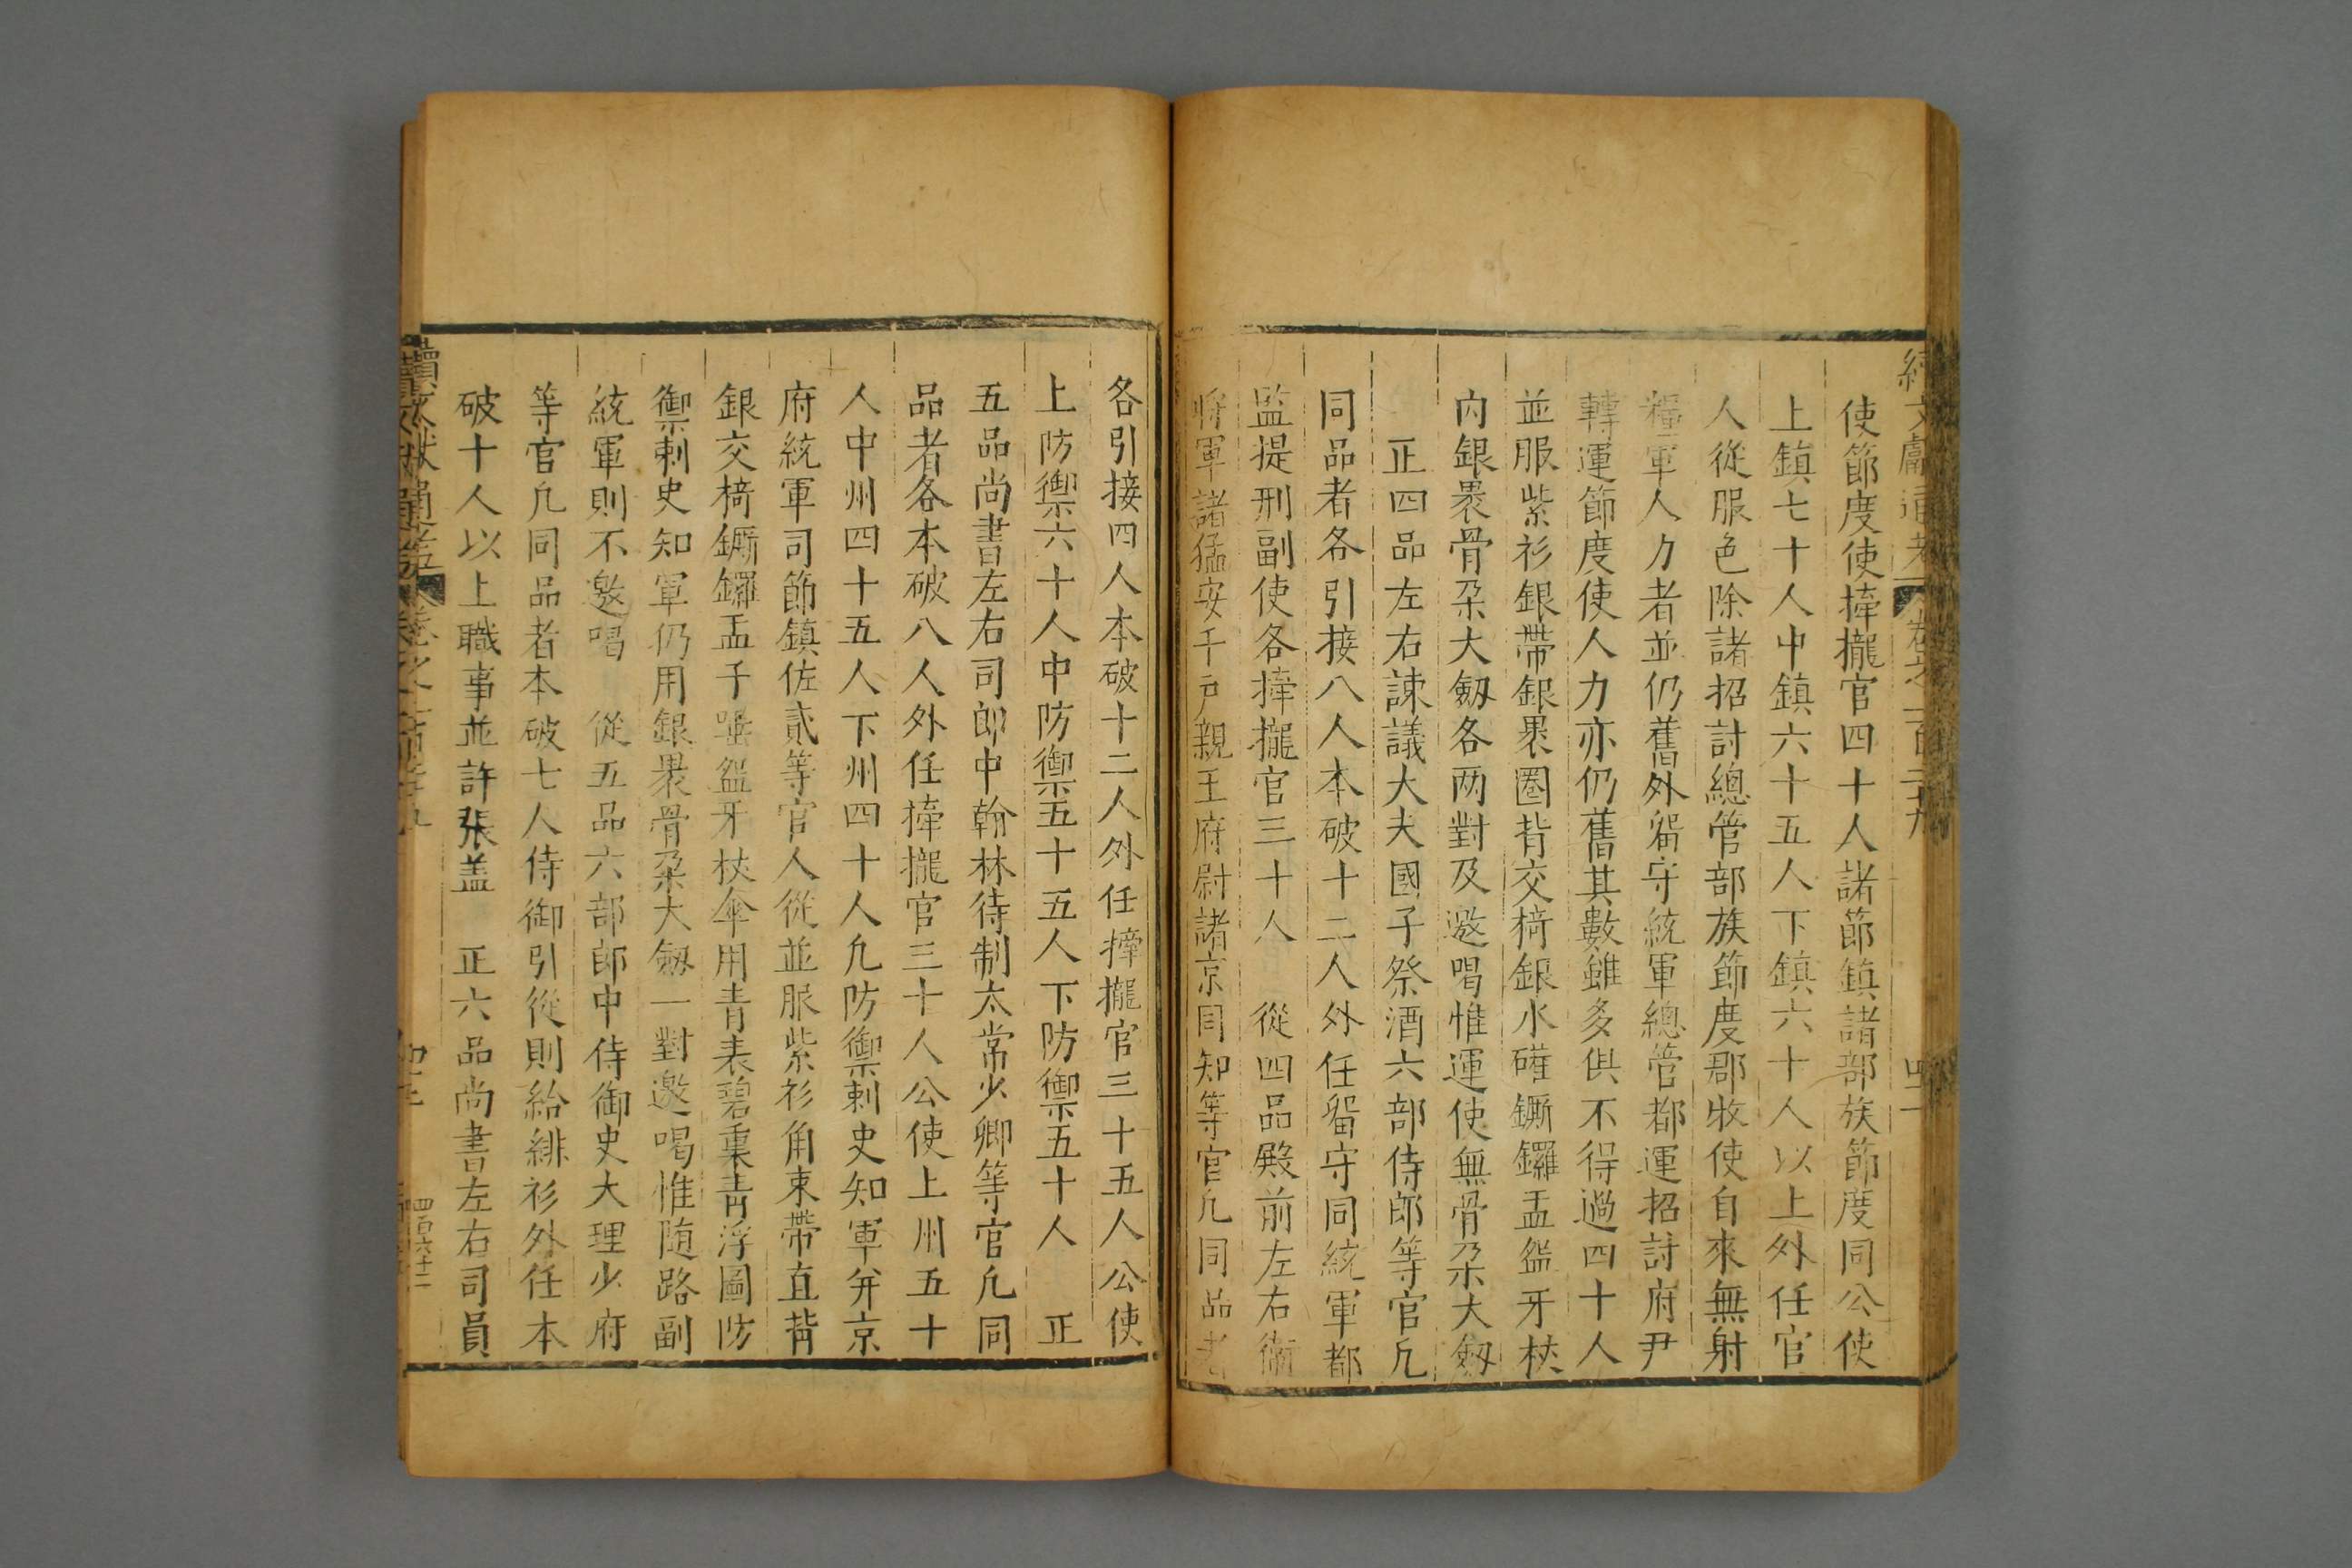 使節度使捧攏官四十人諸節鎮諸部族節度同公使
上鎮七十人中鎮六十五人下鎮六十人以上外任官
人從服色除諸招討總管部族節度郡牧使自來無射
糧軍人力者並仍舊外畱守統軍總管都運招討府尹
轉運節度使人力亦仍舊其數雖多俱不得過四十人
並服紫衫銀帶銀褁圈背交椅銀水礶鐁鑼盂盌牙杖
内銀褁骨朶大劔各两對及邀喝惟運使無骨朶大劔
正四品左右諫議大夫國子祭酒六部侍郎等官凡
同品者各引接八人本破十二人外任畱守同統軍都
監提刑副使各捧攏官三十人 從四品殿前左右衛
將軍諸猛安千戶親王府尉諸京同知等官凡同品者
各引接四人本破十二人外任捧攏官三十五人公使
上防禦六十人中防禦五十五人下防禦五十人 正
五品尚書左右司郎中翰林待制太常少卿等官凡同
品者各本破八人外任捧攏官三十人公使上州五十
人中州四十五人下州四十人凡防禦刺史知軍并京
府統軍司節鎮佐貳等官人從並服紫衫角束帶直背
銀交椅鐁鑼盂子唾盌牙杖傘用青表碧裏青浮圖防
禦刺史知軍仍用銀褁骨朶大劔一對邀喝惟隨路副
統軍則不邀喝 從五品六部郎中侍御史大理少府
等官凡同品者本破七人侍御引從則給緋衫外任本
破十人以上職事並許張盖 正六品尚書左右司員